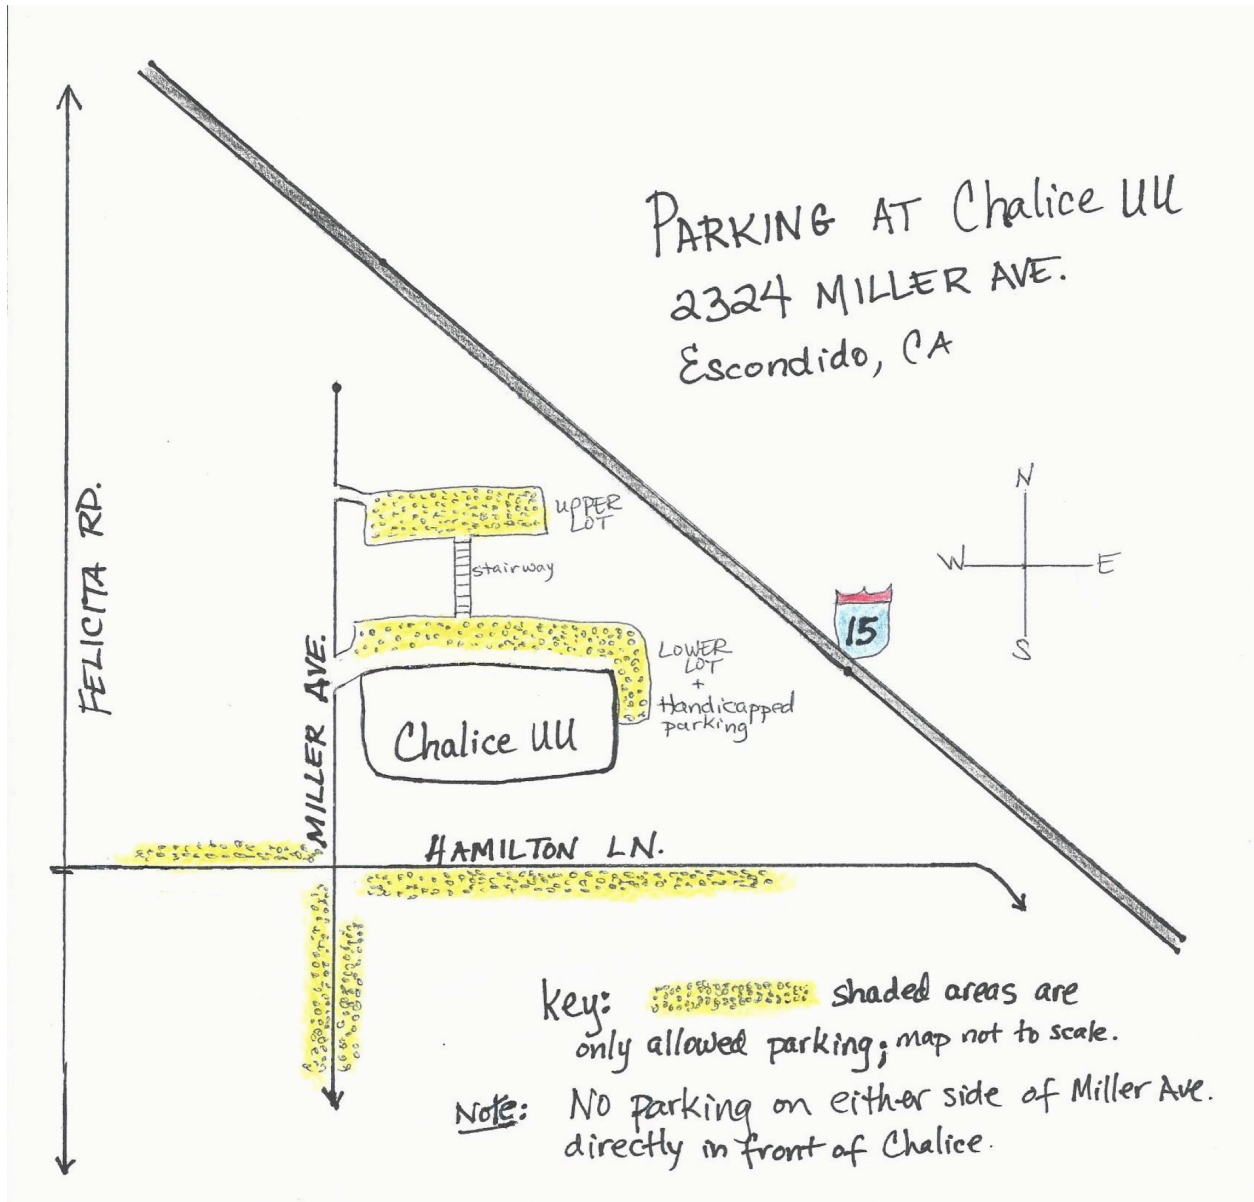 PARKING AT Chalice UU
2324 MILLER AVE.
Escondido, CA
FELICITA RD.
MILLER AVE.
UPPER
LOT
stairway
LOWER
LOT
+
Handicapped
parking
Chalice UU
HAMILTON LN.
15
N
W
E
S
Key: shaded areas are
only allowed parking; map not to scale.
Note: No parking on either side of Miller Ave.
directly in front of Chalice.